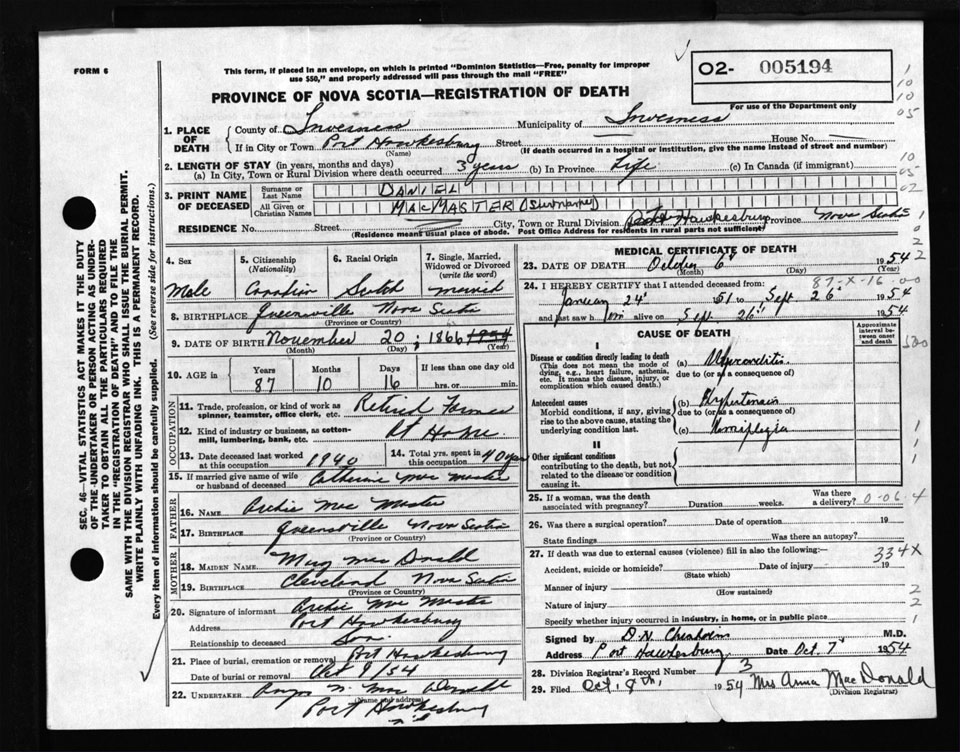 FORM 6
This form, if placed in an envelope, on which is printed "Dominion Statistics—Free, penalty for improper
use $50," and properly addressed will pass through the mail "FREE"
02- 005194
For use of the Department only
PROVINCE OF NOVA SCOTIA—REGISTRATION OF DEATH
1. PLACE OF DEATH
County of Inverness Municipality of Inverness
If in City or Town Port Hawkesbury Street House No.
(Name) (If death occurred in a hospital or institution, give the name instead of street and number)
2. LENGTH OF STAY (in years, months and days)
(a) In City, Town or Rural Division where death occurred 3 years (b) In Province Life (c) In Canada (if immigrant)
3. PRINT NAME OF DECEASED
Surname or Last Name DANIEL
All Given or Christian Names MACMASTER (Surname)
RESIDENCE No. Street City, Town or Rural Division Port Hawkesbury Province Nova Scotia
(Residence means usual place of abode. Post Office Address for residents in rural parts not sufficient)
4. Sex
Male
5. Citizenship (Nationality)
Canadian
6. Racial Origin
Scotch
7. Single, Married, Widowed or Divorced (write the word)
married
8. BIRTHPLACE Greenville Nova Scotia
(Province or Country)
9. DATE OF BIRTH November 20, 1866 1954
(Month) (Day) (Year)
10. AGE in Years 87 Months 10 Days 16 If less than one day old
hrs. or min.
OCCUPATION
11. Trade, profession, or kind of work as spinner, teamster, office clerk, etc. Retired Farmer
12. Kind of industry or business, as cotton-mill, lumbering, bank, etc. At Home
13. Date deceased last worked at this occupation 1940
14. Total yrs. spent in this occupation 40 years
15. If married give name of wife or husband of deceased Catherine Mac Master
FATHER
16. NAME Archie Mac Master
17. BIRTHPLACE Greenville Nova Scotia
(Province or Country)
MOTHER
18. MAIDEN NAME Mary Mac Donald
19. BIRTHPLACE Cleveland Nova Scotia
(Province or Country)
20. Signature of informant Archie Mac Master
Address Port Hawkesbury
Relationship to deceased Son
21. Place of burial, cremation or removal Port Hawkesbury
Date of burial or removal Oct 9/54
22. UNDERTAKER N. Mac Donald
(Name and address)
Port Hawkesbury
MEDICAL CERTIFICATE OF DEATH
23. DATE OF DEATH October 6th 1954
(Month) (Day) (Year)
24. I HEREBY CERTIFY that I attended deceased from: 87-X-16-00
January 24' 51 to Sept 26' 1954
and last saw him alive on Sept 26' 1954
CAUSE OF DEATH
Approximate interval between onset and death
I
Disease or condition directly leading to death
(This does not mean the mode of dying, e.g., heart failure, asthenia, etc. It means the disease, injury, or complication which caused death.)
(a) Myocarditis
due to (or as a consequence of)
Antecedent causes
Morbid conditions, if any, giving rise to the above cause, stating the underlying condition last.
(b) Hypertension
due to (or as a consequence of)
(c) Hemiplegia
II
Other significant conditions
contributing to the death, but not related to the disease or condition causing it.
25. If a woman, was the death associated with pregnancy? Duration weeks. Was there a delivery? 0-06.4
26. Was there a surgical operation? Date of operation 19
State findings Was there an autopsy?
27. If death was due to external causes (violence) fill in also the following:— 334X
Accident, suicide or homicide? Date of injury 19
(State which)
Manner of injury
(How sustained)
Nature of injury
Specify whether injury occurred in industry, in home, or in public place
Signed by D.N. Chisholm M.D.
Address Port Hawkesbury Date Oct. 7' 1954
28. Division Registrar's Record Number 3
29. Filed Oct. 8th, 1954 Mrs Anna MacDonald
(Division Registrar)
SEC. 46—VITAL STATISTICS ACT MAKES IT THE DUTY
OF THE UNDERTAKER OR PERSON ACTING AS UNDER-
TAKER TO OBTAIN ALL THE PARTICULARS REQUIRED
IN THE "REGISTRATION OF DEATH" AND TO FILE THE
SAME WITH THE DIVISION REGISTRAR WHO SHALL ISSUE THE BURIAL PERMIT.
WRITE PLAINLY WITH UNFADING INK. THIS IS A PERMANENT RECORD.
Every item of information should be carefully supplied. (See reverse side for instructions.)